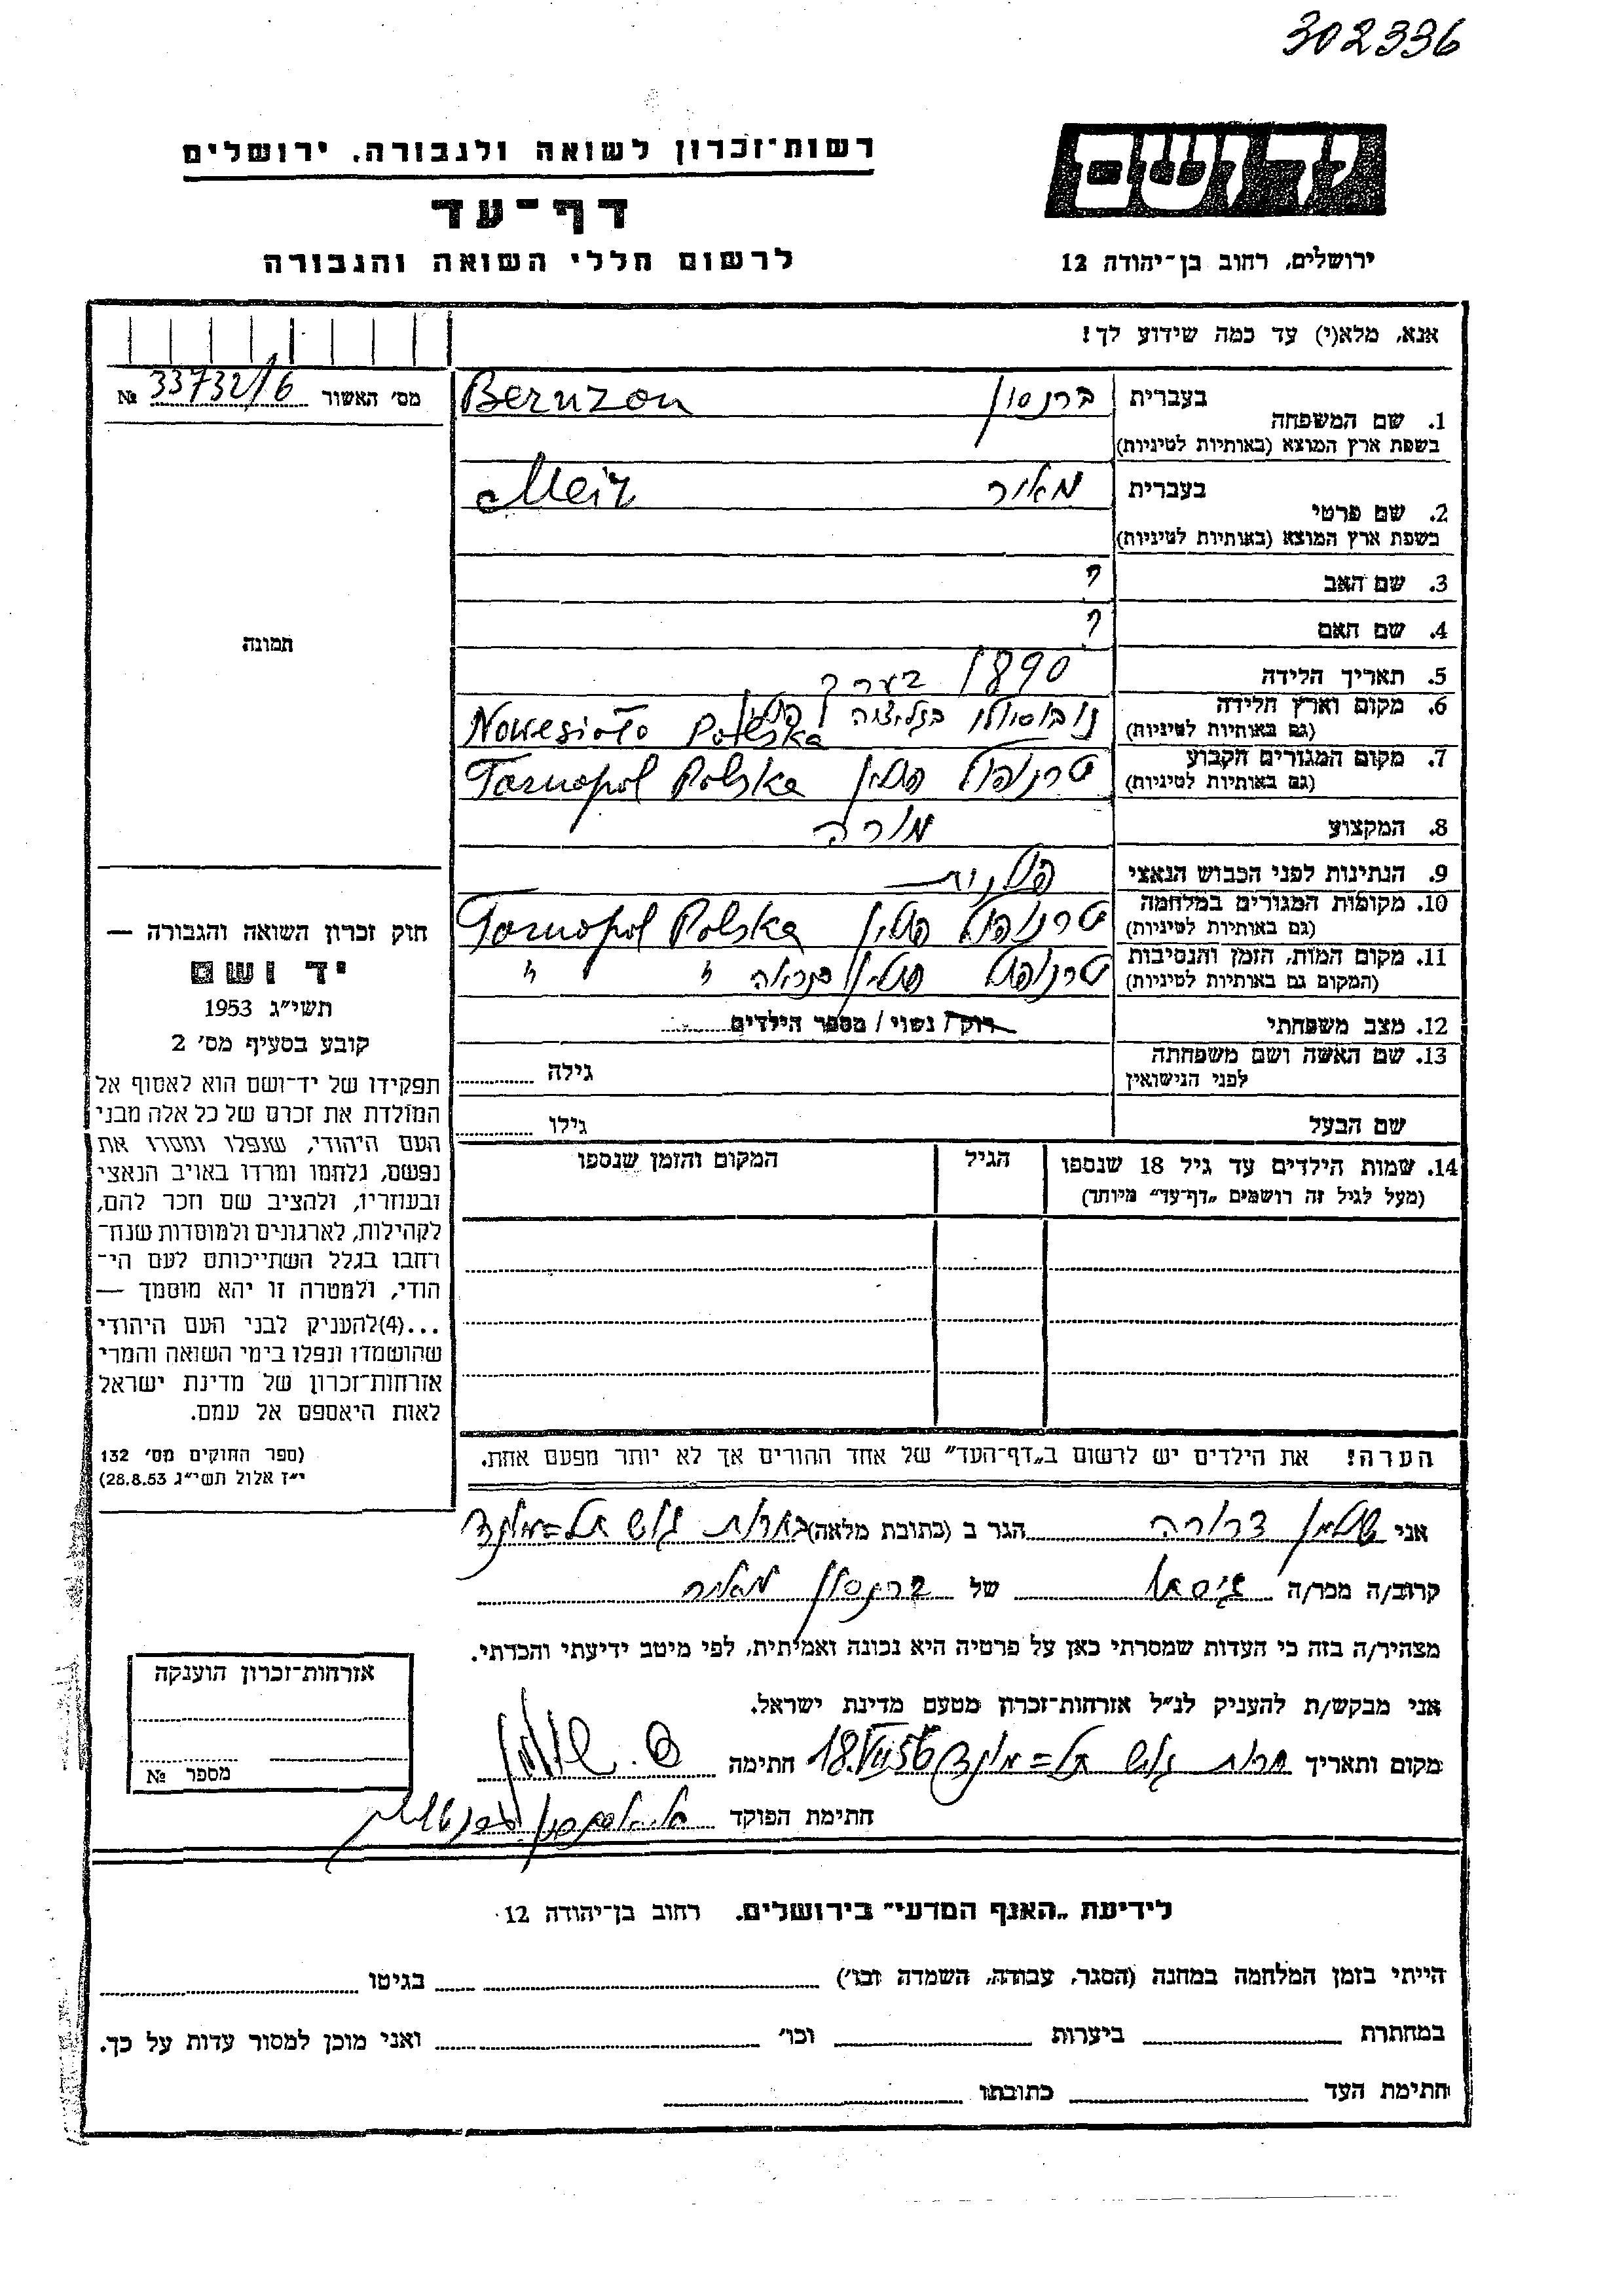 302336
רשות־זכרון לשואה ולגבורה, ירושלים
דף־עד
לרשום חללי השואה והגבורה
ידושם
ירושלים, רחוב בן־יהודה 12
אנא, מלא(י) עד כמה שידוע לך!
מס׳ האשור 33732/6 №
1. שם המשפחה בעברית ברנזון Bernzon
בשפת ארץ המוצא (באותיות לטיניות)
2. שם פרטי בעברית מאיר Meir
בשפת ארץ המוצא (באותיות לטיניות)
3. שם האב ?
4. שם האם ?
5. תאריך הלידה 1890 בערך
6. מקום וארץ הלידה פולין Nowesioło Polska
(גם באותיות לטיניות)
7. מקום המגורים הקבוע טרנופול פולין Tarnopol Polska
(גם באותיות לטיניות)
8. המקצוע מורה
9. הנתינות לפני הכבוש הנאצי פולנית
10. מקומות המגורים במלחמה טרנופול פולין Tarnopol Polska
(גם באותיות לטיניות)
11. מקום המות, הזמן והנסיבות טרנופול פולין כנראה " "
(המקום גם באותיות לטיניות)
12. מצב משפחתי רוק / נשוי / מספר הילדים
13. שם האשה ושם משפחתה גילה
לפני הנישואין
שם הבעל גילו
14. שמות הילדים עד גיל 18 שנספו הגיל המקום והזמן שנספו
(מעל לגיל זה רושמים „דף־עד״ מיוחד)
הערה! את הילדים יש לרשום ב„דף־העד״ של אחד ההורים אך לא יותר מפעם אחת.
תמונה
חוק זכרון השואה והגבורה —
יד ושם
תשי״ג 1953
קובע בסעיף מס׳ 2
תפקידו של יד־ושם הוא לאסוף אל
המולדת את זכרם של כל אלה מבני
העם היהודי, שנפלו ומסרו את
נפשם, נלחמו ומרדו באויב הנאצי
ובעוזריו, ולהציב שם וזכר להם,
לקהילות, לארגונים ולמוסדות שנח־
רחבו בגלל השתייכותם לעם הי־
הודי, ולמטרה זו יהא מוסמך —
...(4)להעניק לבני העם היהודי
שהושמדו ונפלו בימי השואה והמרי
אזרחות־זכרון של מדינת ישראל
לאות היאספם אל עמם.
(ספר החוקים מס׳ 132
י״ז אלול תשי״ג 28.8.53)
אני שולמן דבורה הגר ב (כתובת מלאה)
קרוב/ה מכר/ה גיסה של ברנזון מאיר
מצהיר/ה בזה כי העדות שמסרתי כאן על פרטיה היא נכונה ואמיתית, לפי מיטב ידיעתי והכרתי.
אני מבקש/ת להעניק לנ״ל אזרחות־זכרון מטעם מדינת ישראל.
מקום ותאריך 18.VII 56 חתימה
חתימת הפוקד
אזרחות־זכרון הוענקה
מספר №
לידיעת „האגף המדעי״ בירושלים, רחוב בן־יהודה 12
הייתי בזמן המלחמה במחנה (הסגר, עבודה, השמדה וכו׳) בגיטו
במחתרת ביערות וכו׳ ואני מוכן למסור עדות על כך.
חתימת העד כתובתו